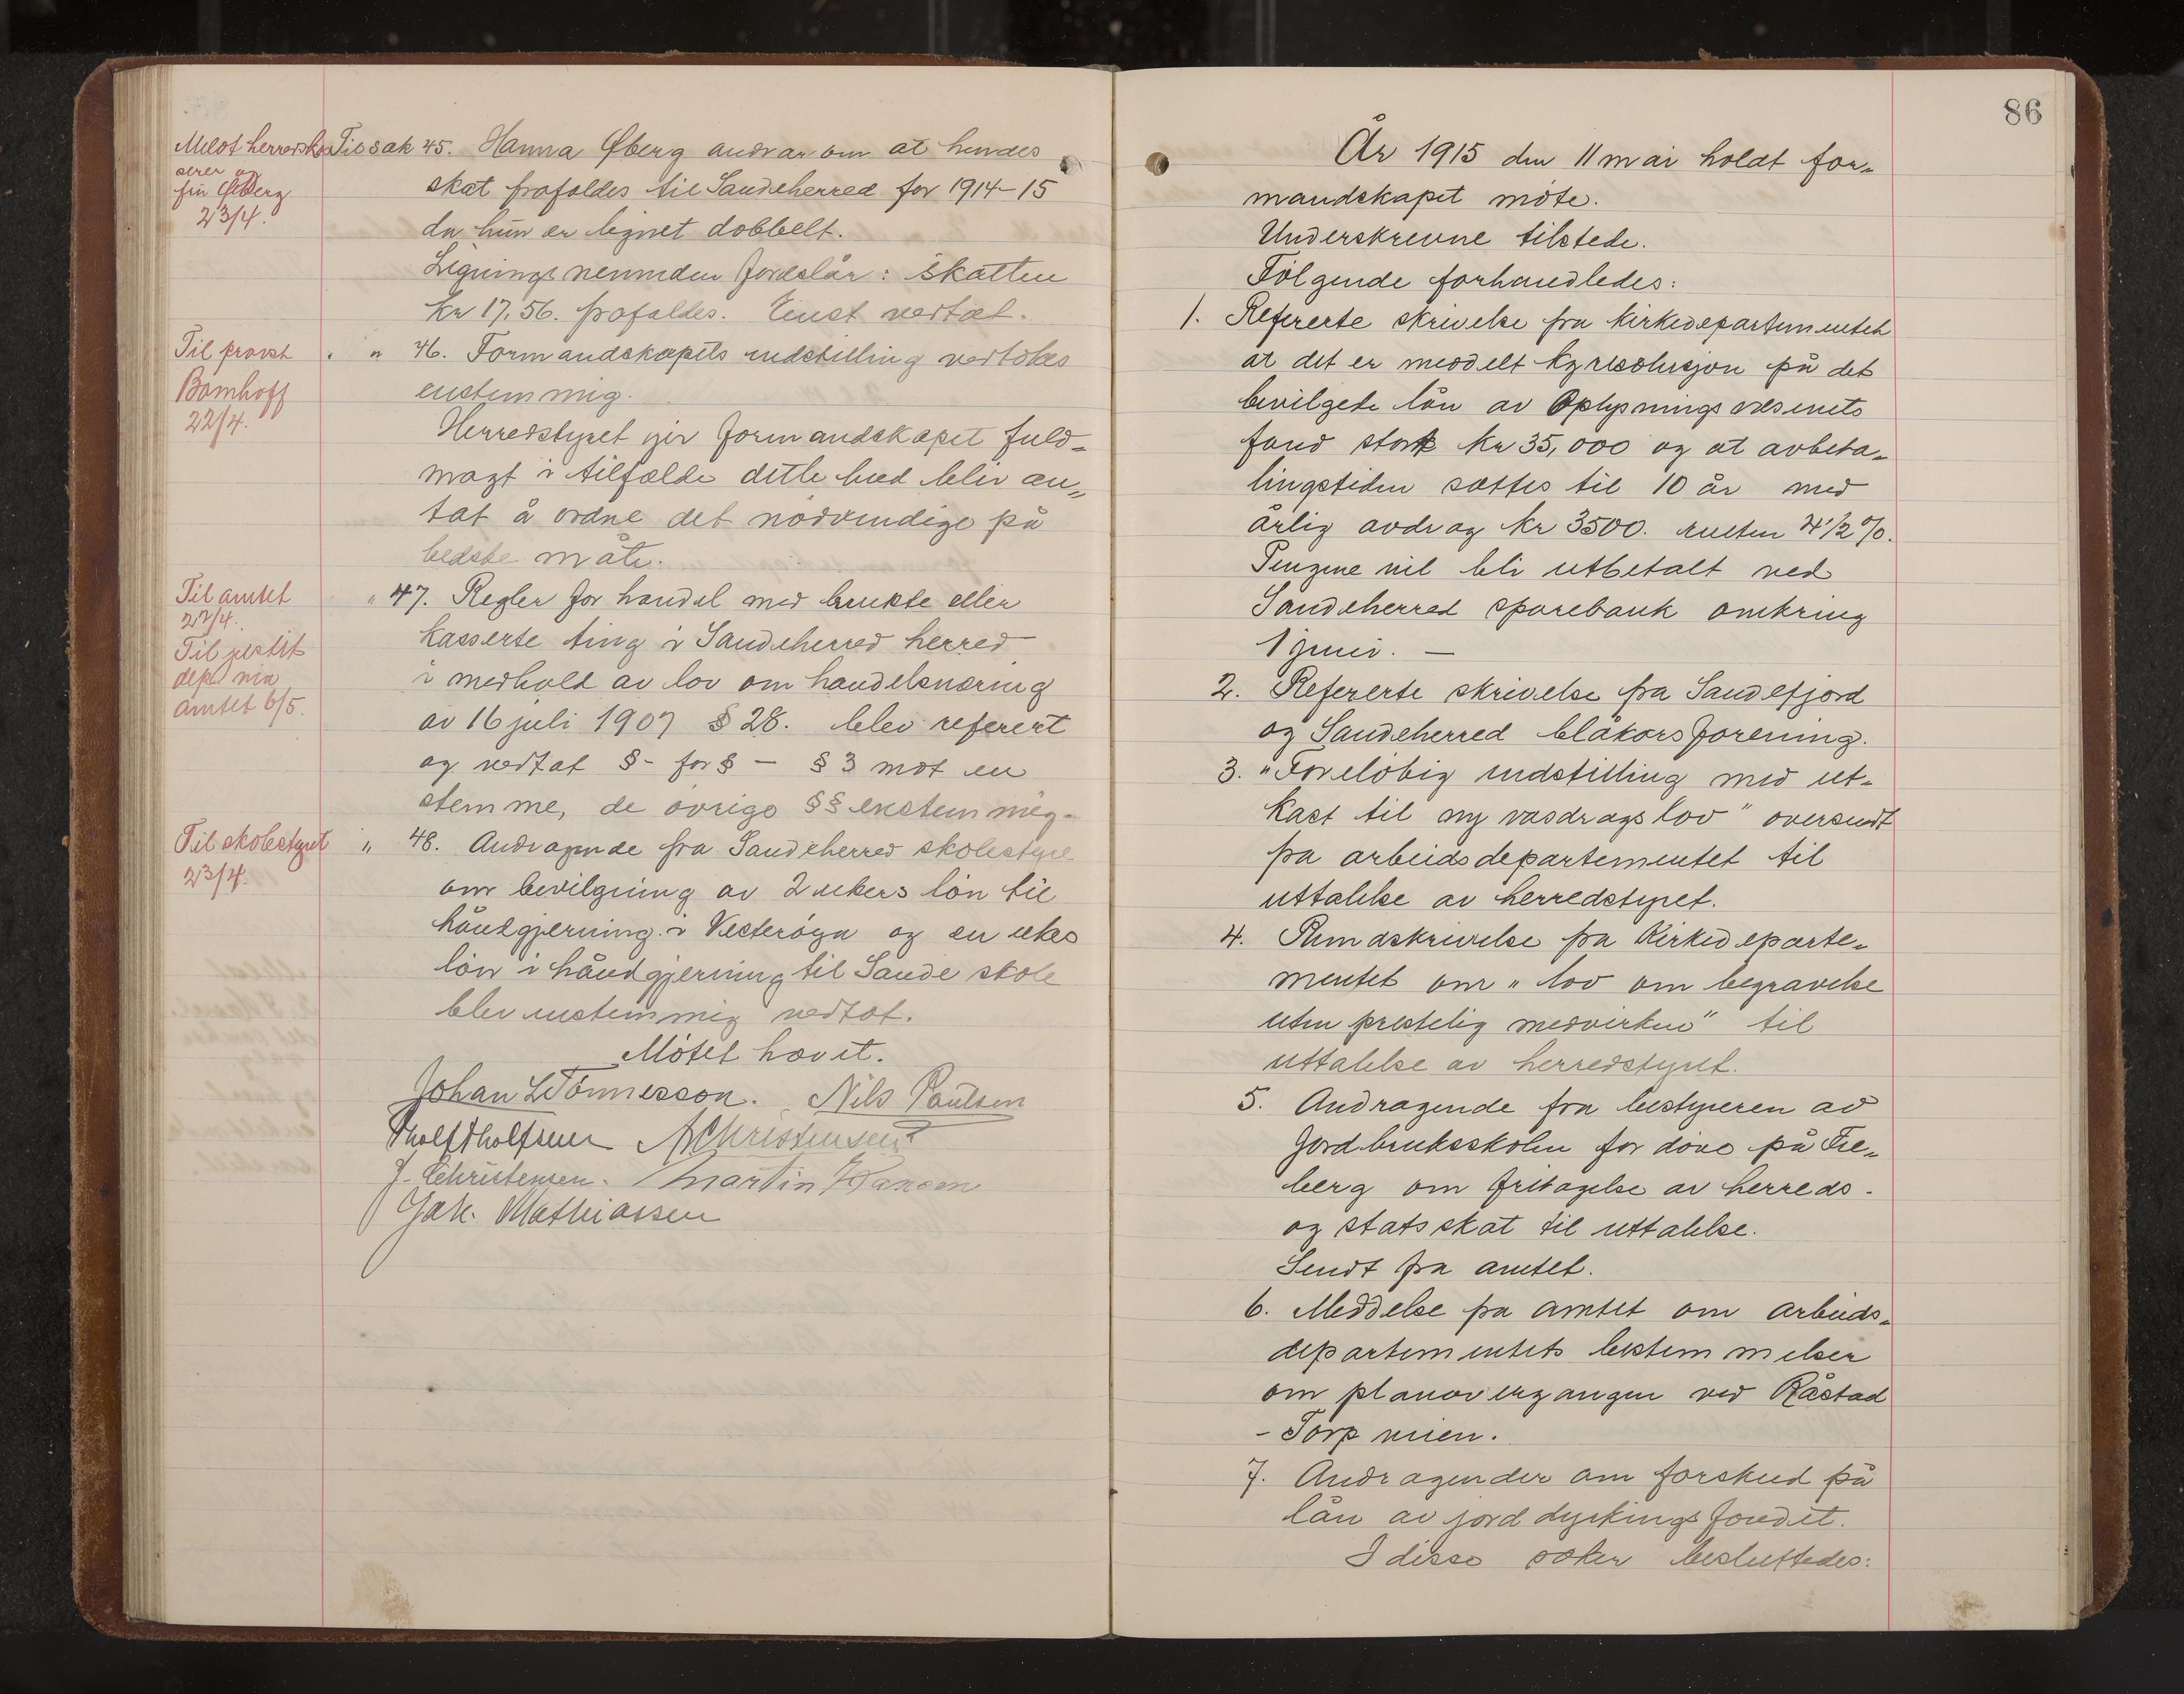 Til sak 45. Hanna Øberg andrar om at hendes
skat frafaldes til Sandeherred for 1914-15
da hun er lignet dobbelt.
Ligningsnemnden foreslår: skatten
kr 17,56. frafaldes. Enst vedtat.
" " 46. Formandskapets indstilling vedtokes
enstemmig.
Herredstyret gir formandskapet fuld-
magt i tilfælde dette bud blir an-
tat å ordne det nødvendige på
bedste måte.
" 47. Regler for handel med brukte eller
kasserte ting i Sandeherred herred
i medhold av lov om handelsnæring
av 16 juli 1907 § 28. blev referert
og vedtat §- for § - § 3 mot en
stemme, de øvrige §§ enstemmig.
" 48. Andragende fra Sandeherred skolestyre
om bevilgning av 2 ukers løn til
håndgjerning i Vesterøya og en ukes
løn i håndgjerning til Sande skole
blev enstemmig vedtat.
Møtet hævet.
Johan L Tønnesson. Nils Paulsen
Tholf Tholfsen A Christensen
J. Christensen. Martin Hansen
Jak. Mathiassen
Medt herredskas
serer og
frk Øberg
23/4.
Til provst
Bomhoff
22/4.
Til amtet
27/4.
Til justits
dep. via
amtet 6/5.
Til skolestyret
23/4.
86
År 1915 den 11 mai holdt for-
mandskapet møte.
Underskrevne tilstede.
Følgende forhandledes:
1. Refererte skrivelse fra kirkedepartementet
at det er meddelt kgresolusjon på det
bevilgede lån av Oplysningsvæsenets
fond stort kr 35,000 og at avbeta-
lingstiden sættes til 10 år med
årlig avdrag kr 3500. renten 4 1/2 %.
Pengene vil bli utbetalt ved
Sandeherred sparebank omkring
1 juni. —
2. Refererte skrivelse fra Sandefjord
og Sandeherred blåkorsforening.
3. "Foreløbig indstilling med ut-
kast til ny vasdragslov" oversendt
fra arbeidsdepartementet til
uttalelse av herredstyret.
4. Rundskrivelse fra Kirkedeparte-
mentet om "lov om begravelse
uten prestelig medvirken" til
uttalelse av herredstyret.
5. Andragende fra bestyreren av
Jordbruksskolen for døve på Fre-
berg om fritagelse av herreds-
og statsskat til uttalelse.
Sendt fra amtet.
6. Meddelse fra amtet om arbeids-
departementets bestemmelser
om planovergangen ved Råstad
- Torp veien.
7. Andragender om forskud på
lån av jorddyrkingsfondet.
I disse saker besluttedes: